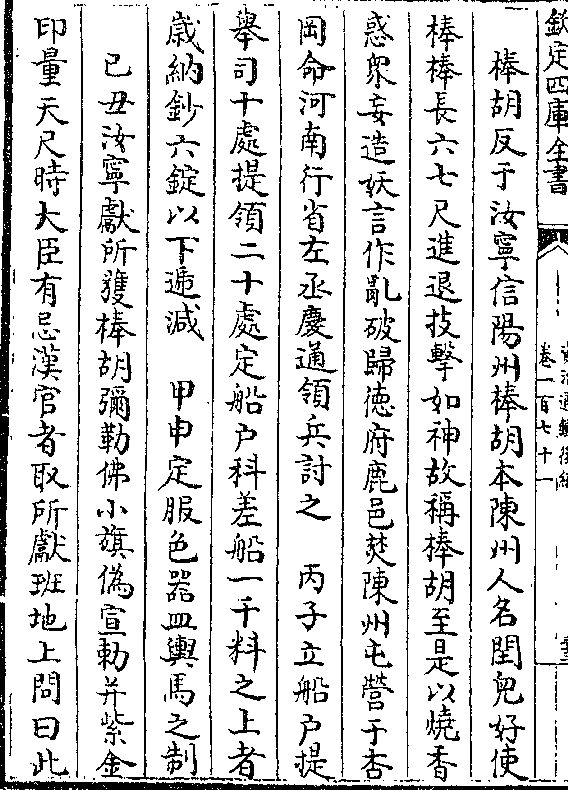 欽定四庫全書
卷一百七十一
棒胡反于汝寧信陽州棒胡本陳州人名閏兒好使
棒棒長六七尺進退技擊如神故稱棒胡至是以燒香
惑衆妄造妖言作亂破歸德府鹿邑焚陳州屯營于杏
岡命河南行省左丞慶通領兵討之　丙子立船户提
舉司十處提領二十處定船户科差船一千料之上者
歳納鈔六錠以下遞減　甲申定服色器皿輿馬之制
己丑汝寧獻所獲棒胡彌勒佛小旗偽宣勅并紫金
印量天尺時大臣有忌漢官者取所獻班地上問曰此